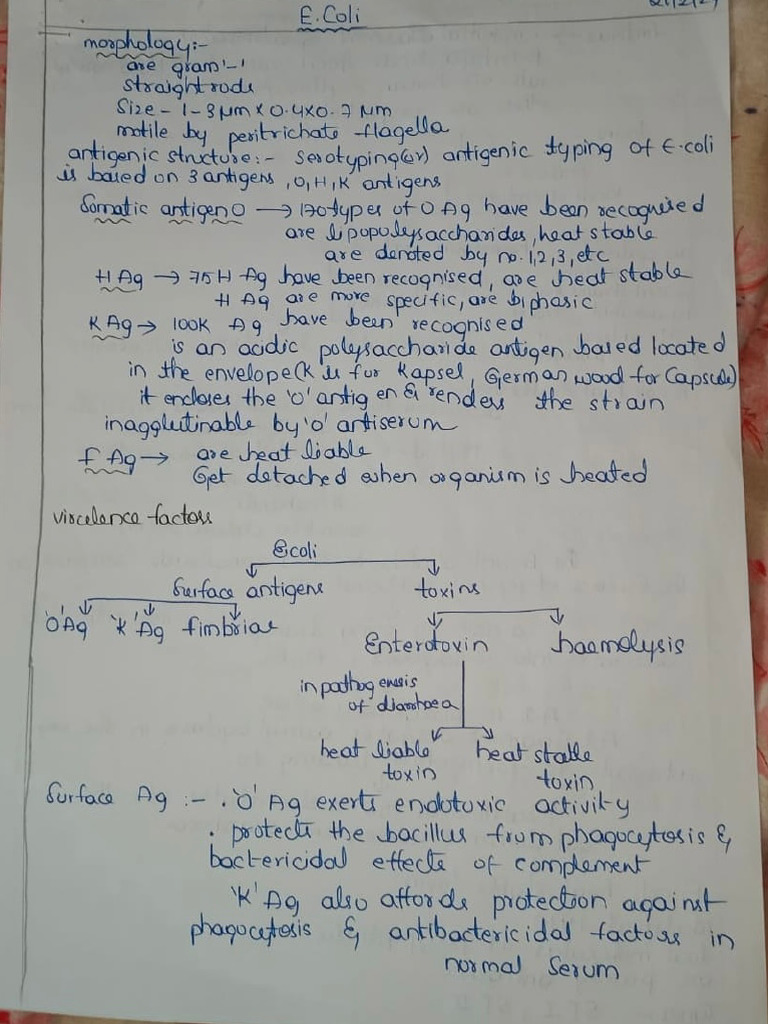 E.Coli
morphology:-
are gram '-'
straight rods
Size - 1-3 µm x 0.4x0.7 µm
motile by peritrichate flagella
antigenic structure:- serotyping (or) antigenic typing of E.coli
is based on 3 antigens, O, H, K antigens
Somatic antigen O → 170 types of O Ag have been recognised
are lipopolysaccharides, heat stable
are denoted by no. 1, 2, 3, etc
H Ag → 75 H Ag have been recognised, are heat stable
H Ag are more specific, are biphasic
K Ag → 100K Ag have been recognised
is an acidic polysaccharide antigen based located
in the envelope (K is for Kapsel, German wood for Capsule)
it encloses the 'O' antigen & renders the strain
inagglutinable by 'O' antiserum
f Ag → are heat liable
Get detached when organism is heated
virulence factors
Ecoli
Surface antigens toxins
'O' Ag 'K' Ag fimbriae
Enterotoxin haemolysis
in pathogenesis
of diarrhoea
heat liable heat stable
toxin toxin
Surface Ag :- . 'O' Ag exerts endotoxic activity
. protects the bacillus from phagocytosis &
bactericidal effects of complement
'K' Ag also affords protection against
phagocytosis & antibactericidal factors in
normal Serum